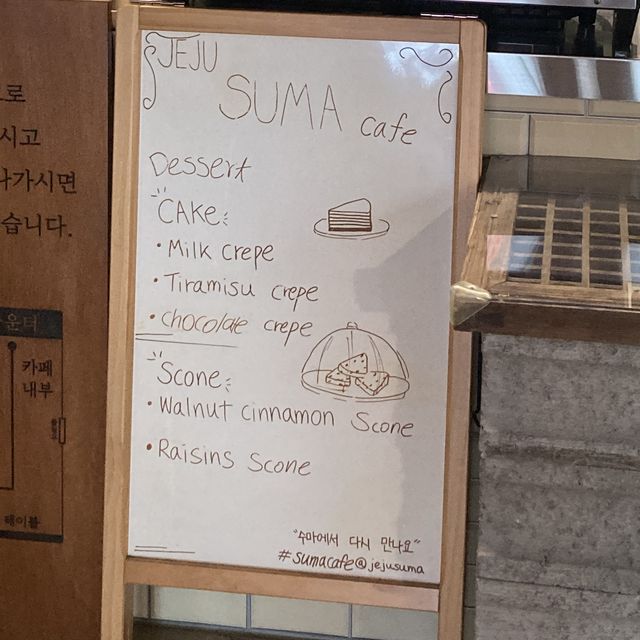 JEJU
SUMA cafe
Dessert
CAKe
• Milk crepe
• Tiramisu crepe
• chocolate crepe
Scone
• Walnut cinnamon Scone
• Raisins Scone
"수마에서 다시 만나요"
#sumacafe@jejusuma
으로
시고
나가시면
습니다.
운터
카페
내부
테이블